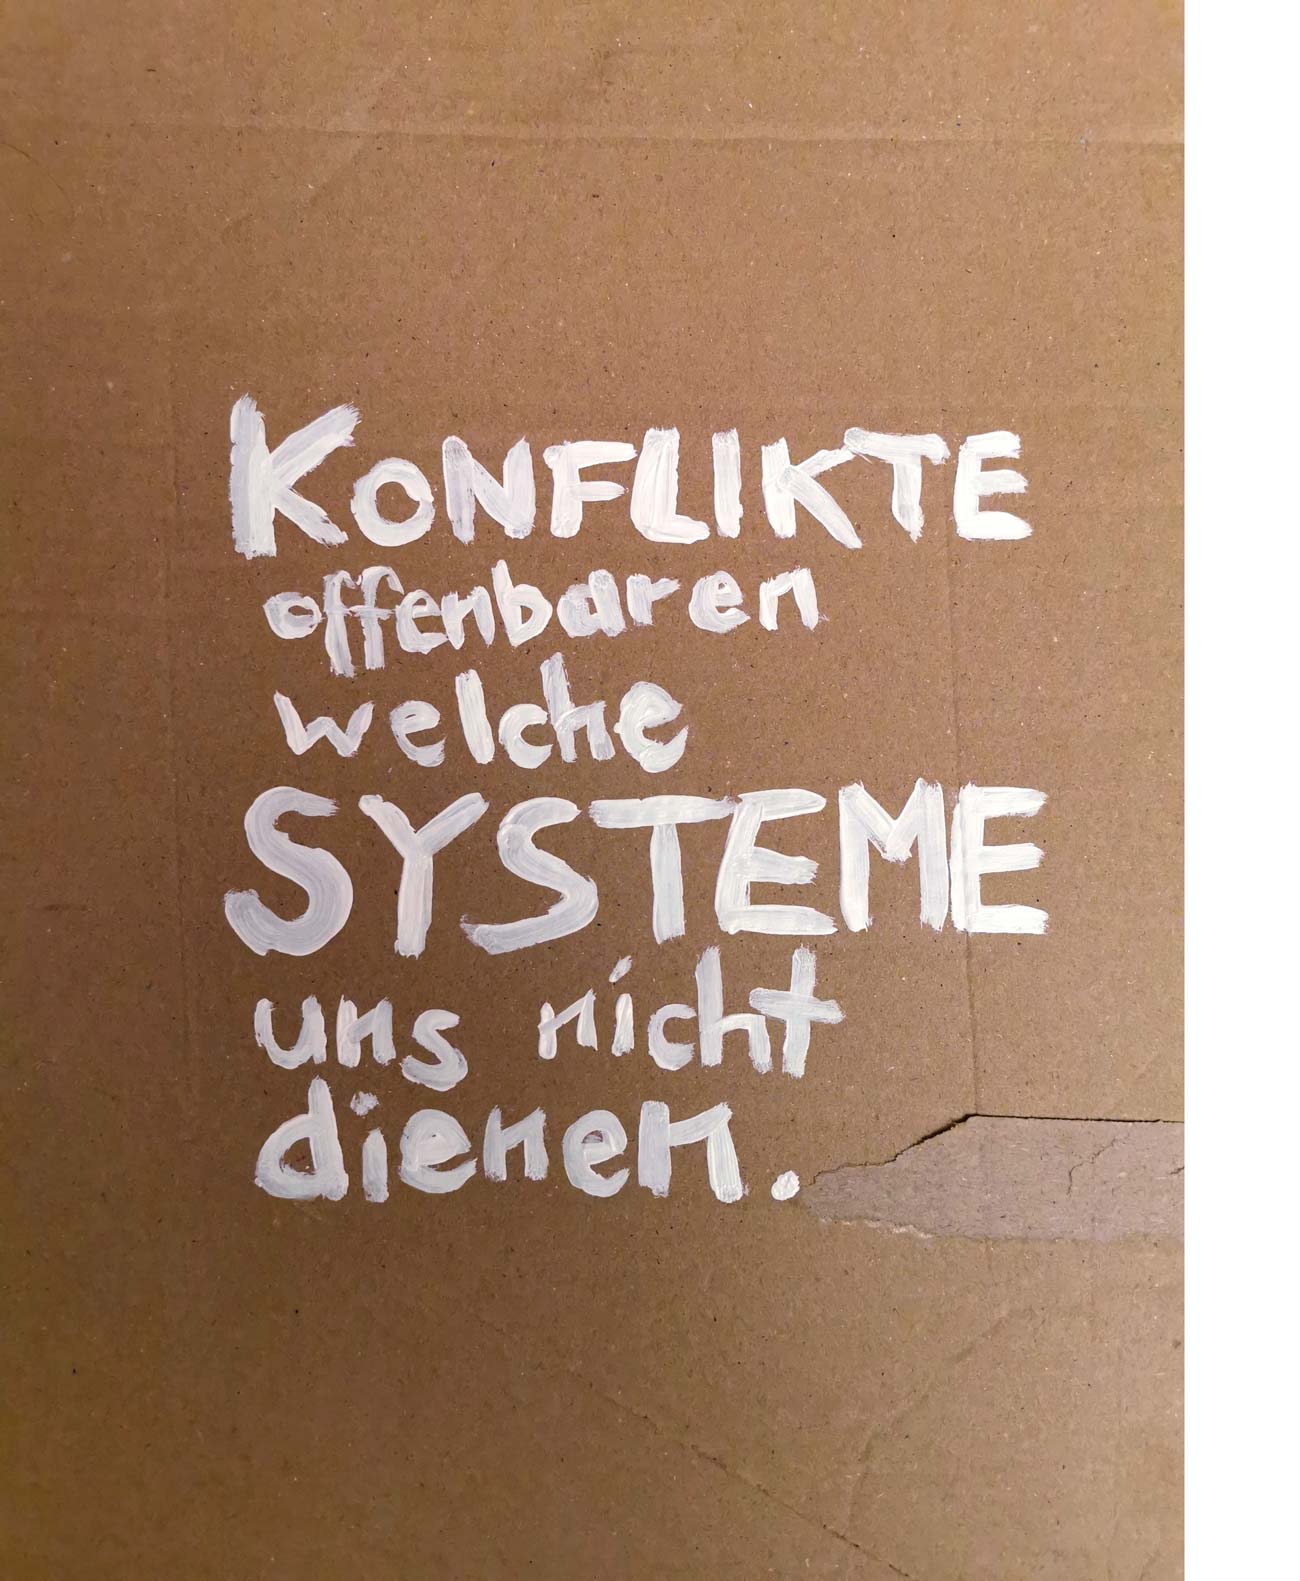 KONFLIKTE
offenbaren
welche
SYSTEME
uns nicht
dienen.